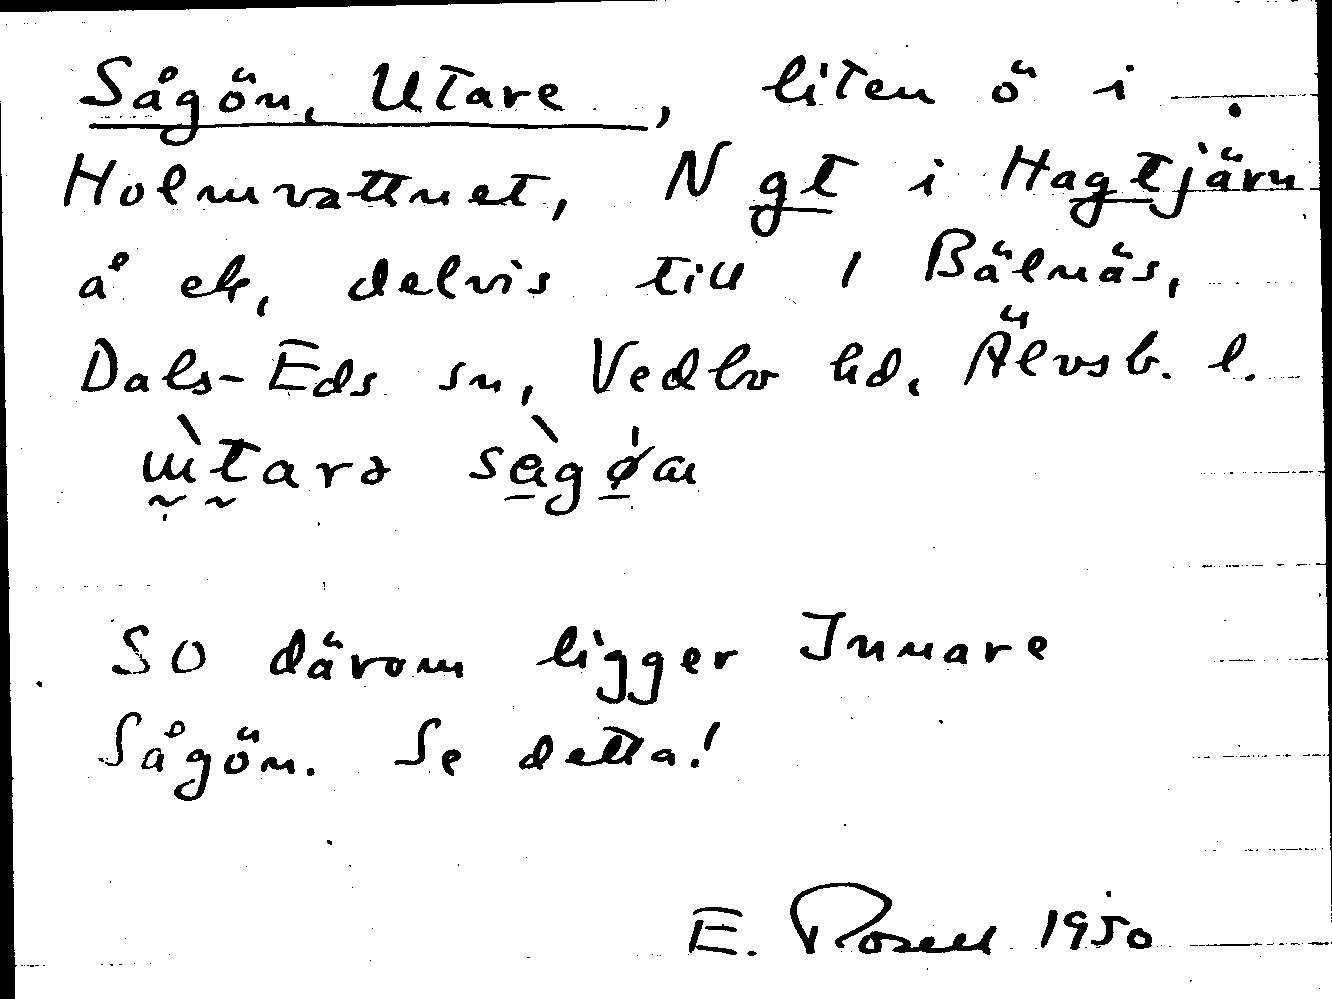 Sågön, Utare, liten ö i
Holmvattnet, N gt i Hagtjärn
å ek, delvis till 1 Bälnäs,
Dals-Eds sn, Vedbo hd, Älvsb. l.
SO därom ligger Innare
Sågön. Se detta!
E. Rosell 1950